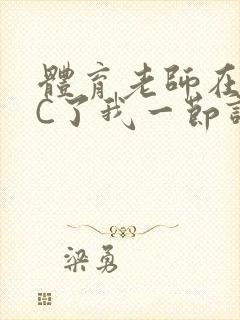 體育老師在
C了我一節
梁勇